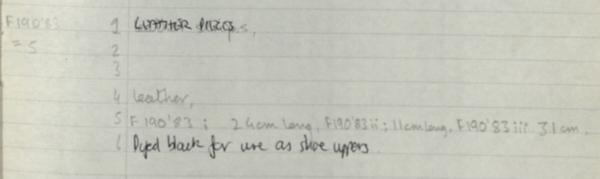 F190'83 1 LEATHER PIECES,
= 5 2
3
4 leather,
5 F190'83 i 24cm long, F190'83 ii: 11cm long, F190'83 iii 31cm.
6 Dyed black for use as shoe uppers